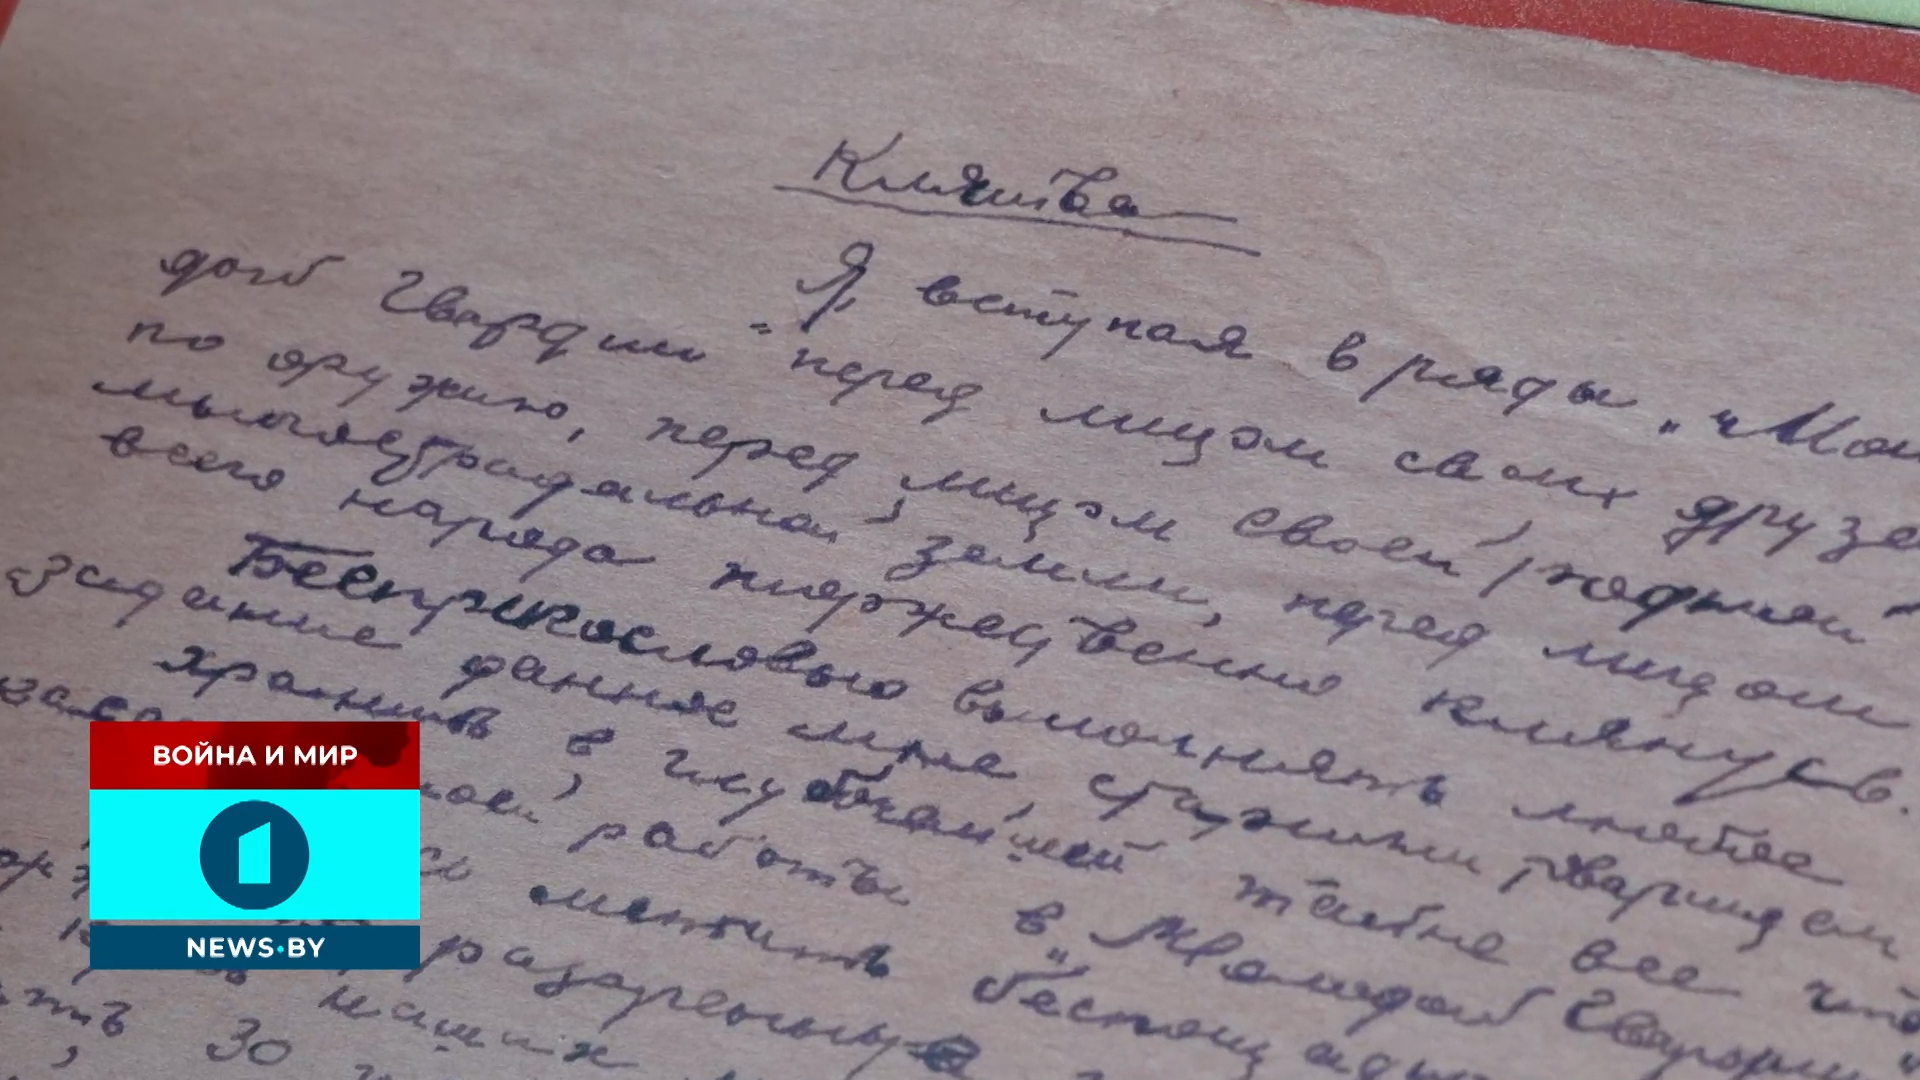 Клятва
Я вступая в ряды „Мол
дой Гвардии" перед лицом своих друзе
по оружию, перед лицом своей родной
многострадальной земли, перед лицом
всего народа торжественно клянусь.
Беспрекословно выполнять любое
задание данное мне старшим товарищем
хранить в глубочайшей тайне все что
работы в „Молодой Гвардии"
мстить беспощадн
разоренные
наших
за
ВОЙНА И МИР
NEWS.BY